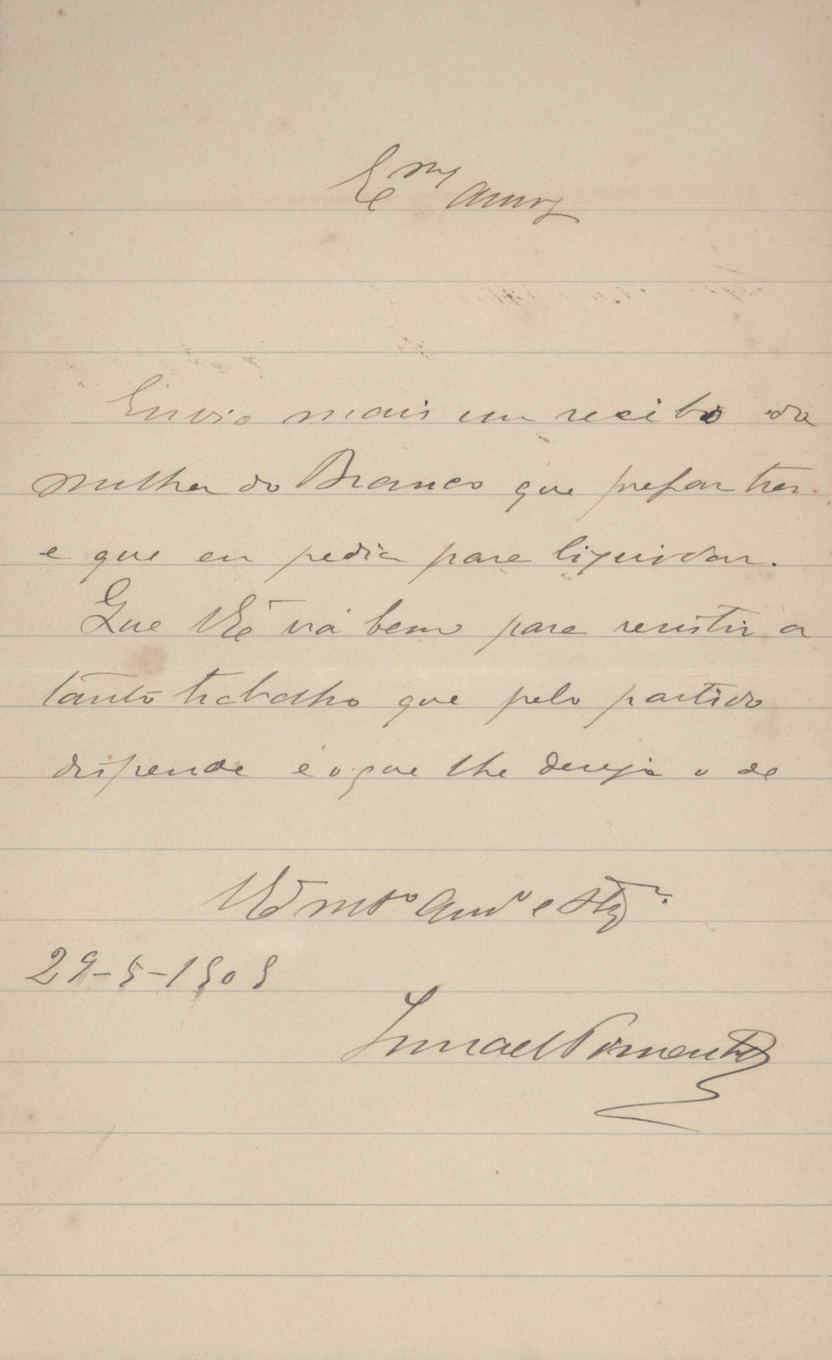 Exmo amigo
Envio mais um recibo da
mulher do Branco que prefaz tres
e que eu pedia para liquidar.
Que VExª vá bem para resistir a
tanto trabalho que pelo partido
dispende é o que lhe deseja o de
VExª mto amº e
29-5-1909
Ismael Pimentel